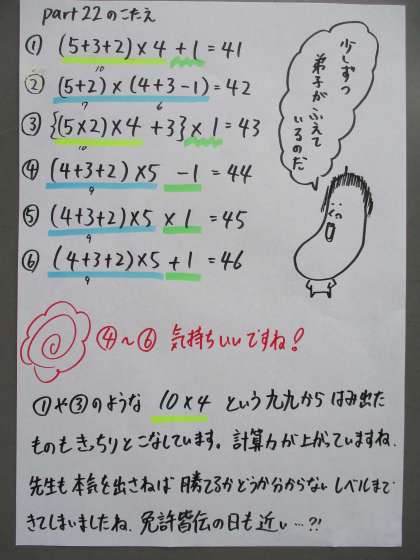 part 22 のこたえ
① (5+3+2)×4 +1 = 41
10
② (5+2)×(4+3-1) = 42
7 6
③ {(5×2)×4 +3}×1 = 43
10
④ (4+3+2)×5 -1 = 44
9
⑤ (4+3+2)×5 ×1 = 45
9
⑥ (4+3+2)×5 +1 = 46
9
少しずつ
弟子が
ふえて
いるのだ
④〜⑥ 気持ちいいですね!
①や③のような 10×4 という九九からはみ出た
ものもきっちりとこなしています。計算力が上がっていますね。
先生も本気を出さねば勝てるかどうか分からないレベルまで
きてしまいましたね。免許皆伝の日も近い…?!